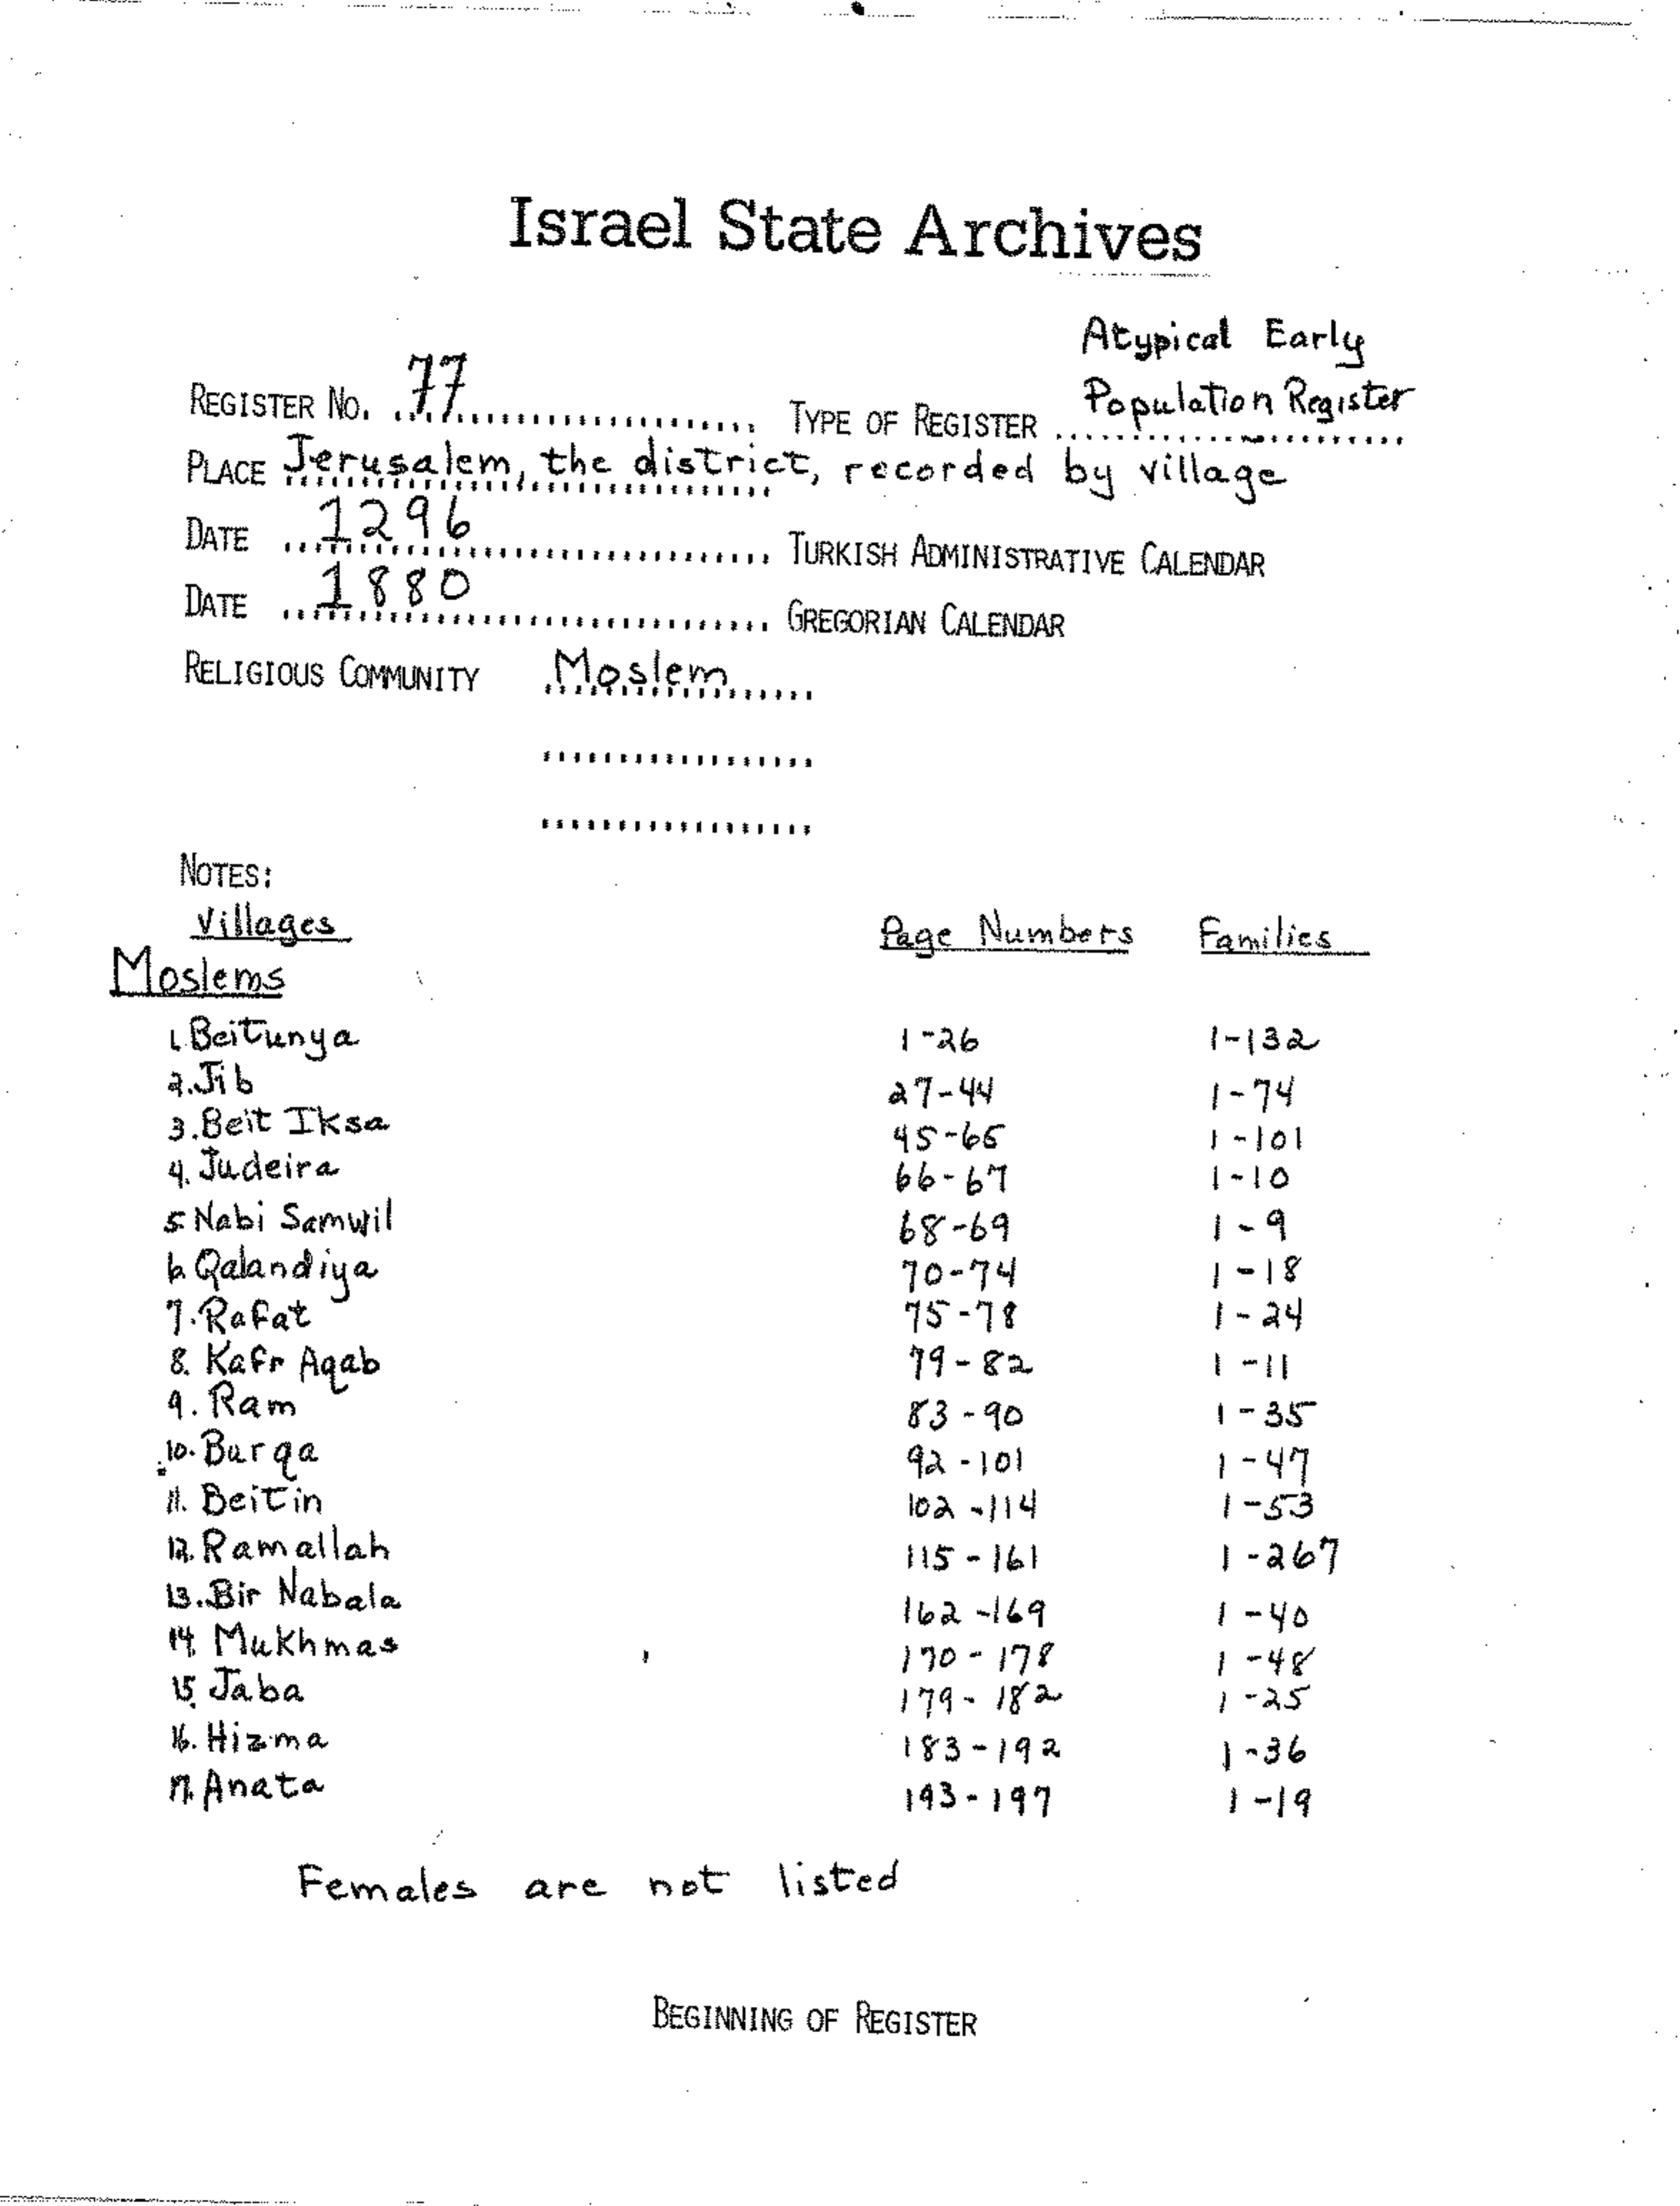 Israel State Archives
Atypical Early
REGISTER NO. 77 TYPE OF REGISTER Population Register
PLACE Jerusalem, the district, recorded by village
DATE 1296 TURKISH ADMINISTRATIVE CALENDAR
DATE 1880 GREGORIAN CALENDAR
RELIGIOUS COMMUNITY Moslem
NOTES:
Villages Page Numbers Families
Moslems
1. Beitunya 1-26 1-132
2. Jib 27-44 1-74
3. Beit Iksa 45-65 1-101
4. Judeira 66-67 1-10
5. Nabi Samwil 68-69 1-9
6. Qalandiya 70-74 1-18
7. Rafat 75-78 1-24
8. Kafr Aqab 79-82 1-11
9. Ram 83-90 1-35
10. Burqa 92-101 1-47
11. Beitin 102-114 1-53
12. Ramallah 115-161 1-267
13. Bir Nabala 162-169 1-40
14. Mukhmas 170-178 1-48
15. Jaba 179-182 1-25
16. Hizma 183-192 1-36
17. Anata 193-197 1-19
Females are not listed
BEGINNING OF REGISTER